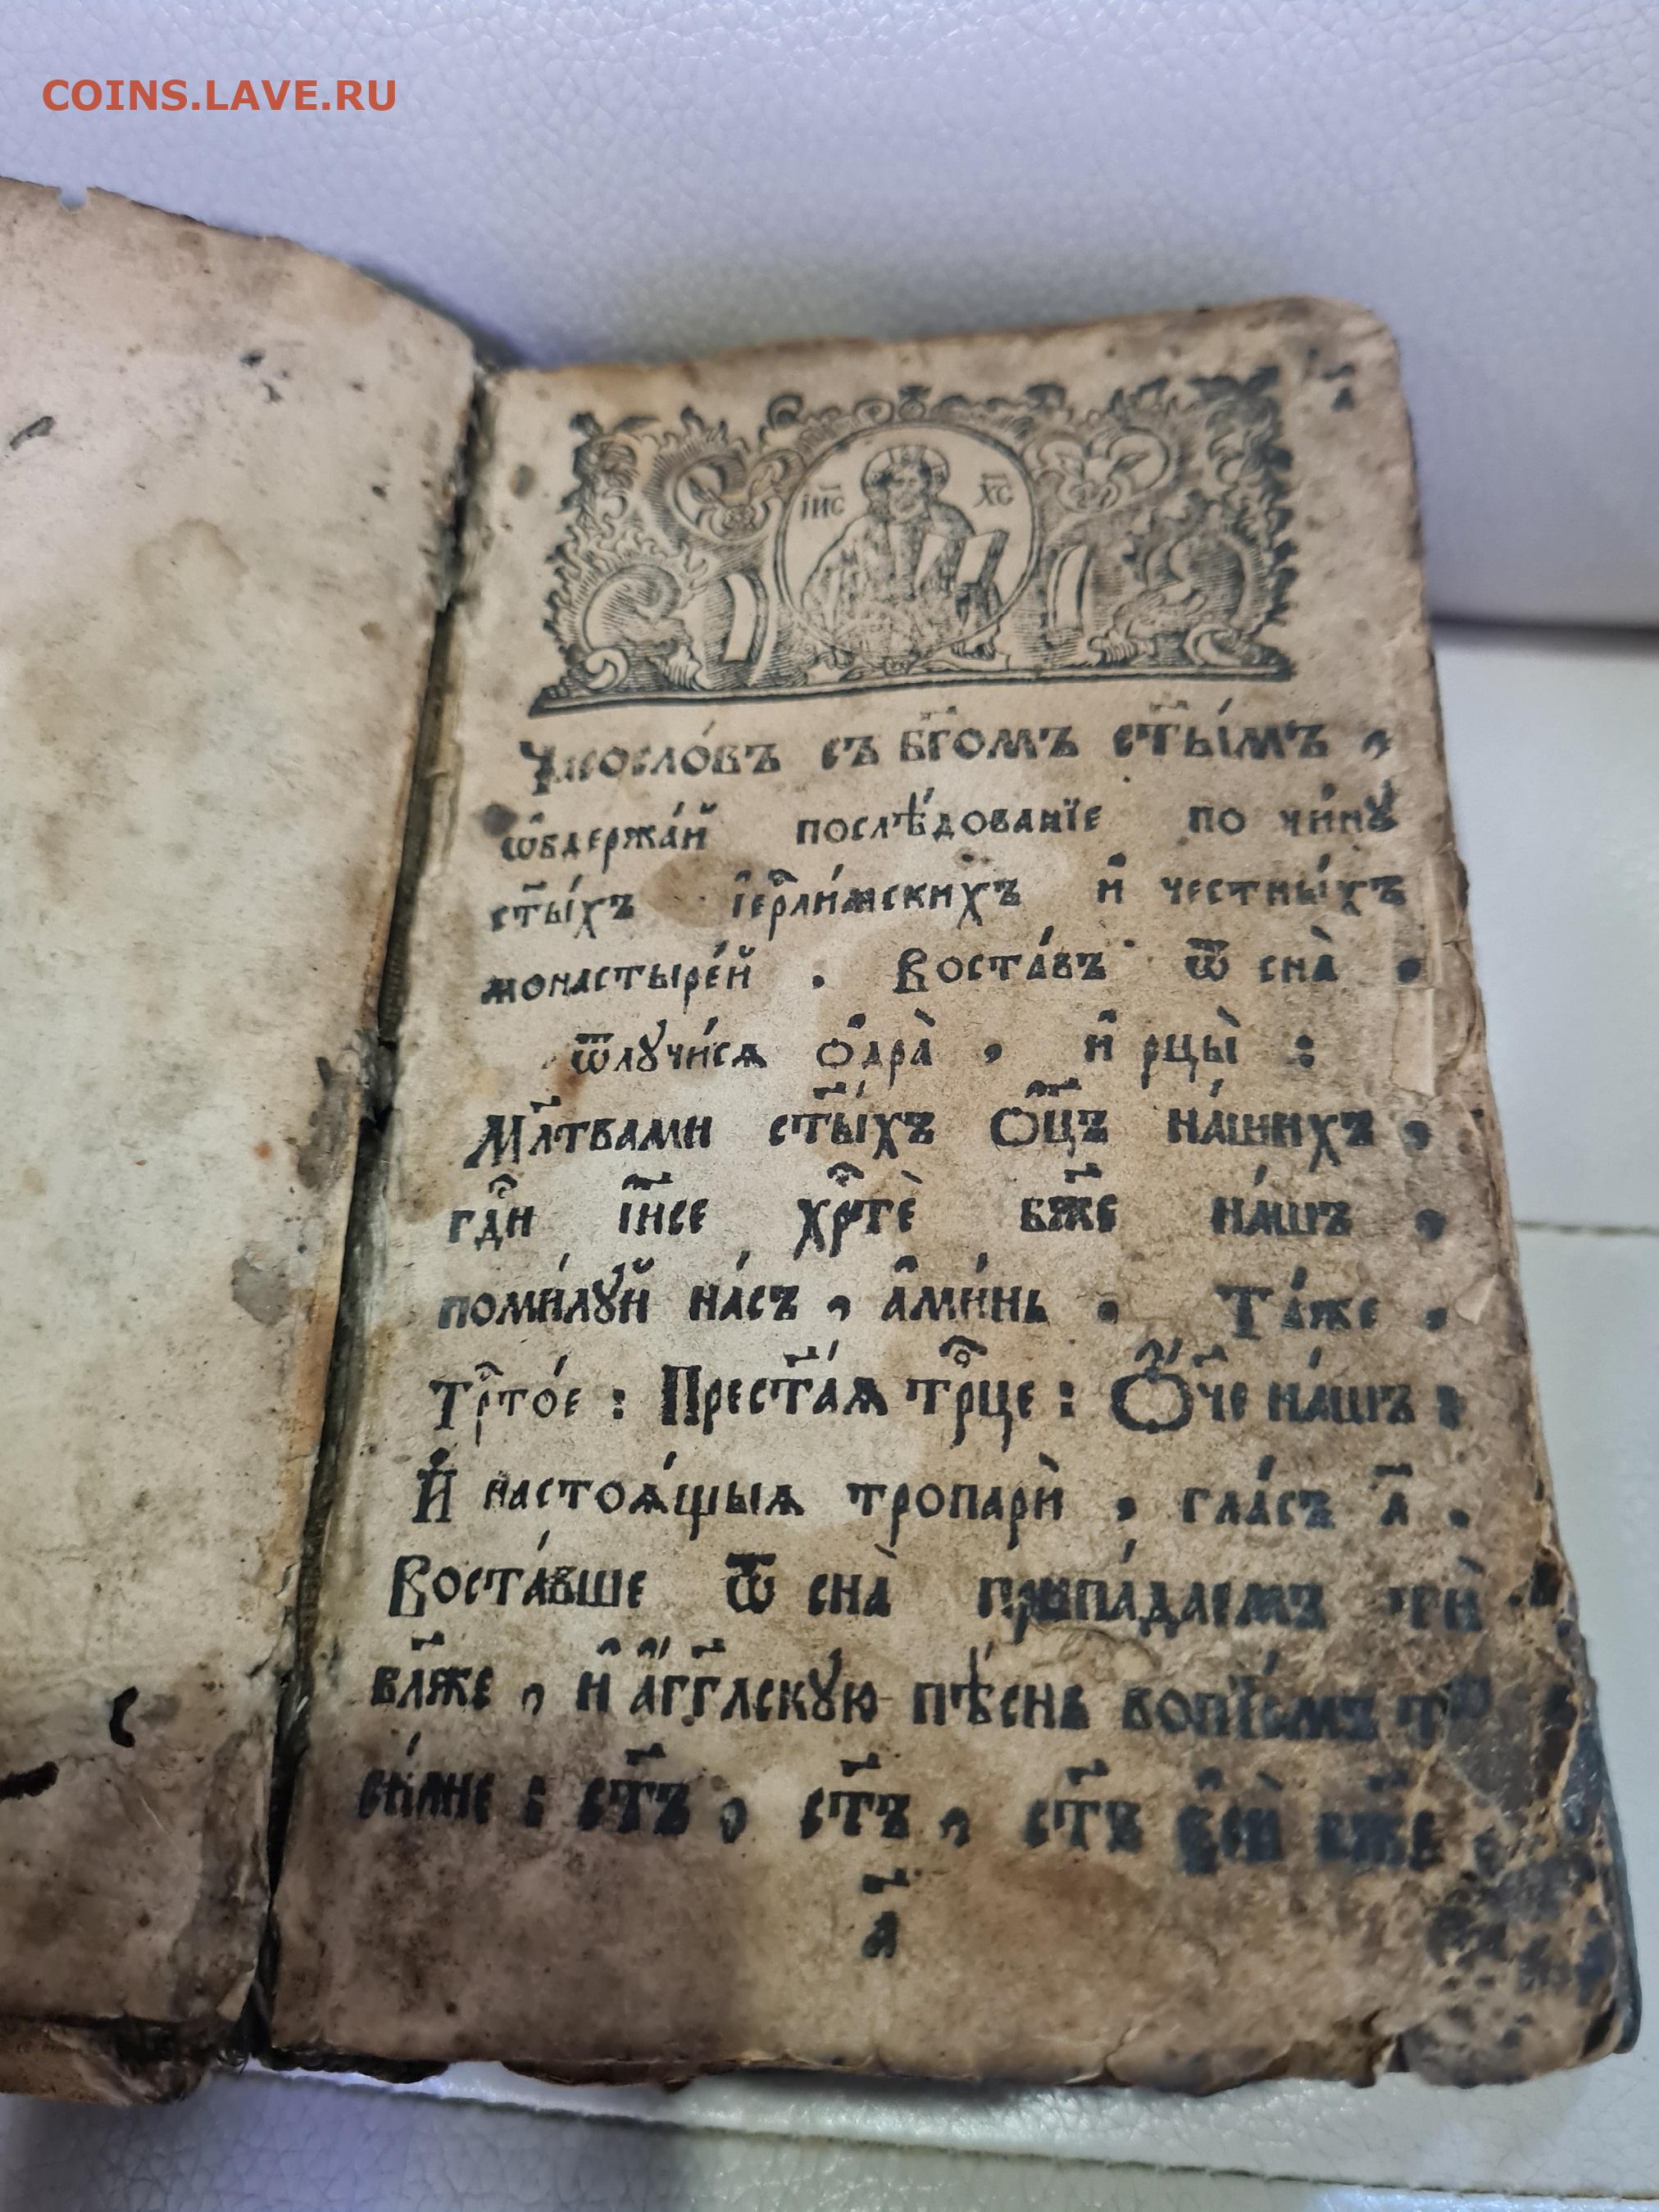 COINS.LAVE.RU
а҃
І҆И҃С Х҃С
Часосло́въ съ бг҃омъ ст҃ы́мъ ,
ѡ҆бдержа́й послѣ́дованїе по чи́нꙋ
ст҃ы́хъ і҆ерⷭ҇ли́мскихъ и҆ честны́хъ
монастыре́й . Воста́въ ѿ сна̀ .
ѿлꙋчи́сѧ ѻ҆дра̀ , и҆ рцы̀ :
Мл҃твами ст҃ы́хъ ѻ҆ц҃ъ на́шихъ ,
гдⷭ҇и і҆и҃се хрⷭ҇тѐ бж҃е на́шъ ,
поми́лꙋй на́съ , а҆ми́нь . Та́же ,
Трⷭ҇то́е : Прест҃а́ѧ трⷪ҇це : Ѻ҆́ч҃е на́шъ :
И҆ настоѧ́щыѧ тропарѝ , гла́съ а҃ .
Воста́вше ѿ сна̀ припа́даемъ тѝ
бл҃же , и҆ а҆́гг҃лскꙋю пѣ́снь вопїе́мъ тѝ
си́лне : ст҃ъ , ст҃ъ , ст҃ъ є҆сѝ бж҃е ,
а҃